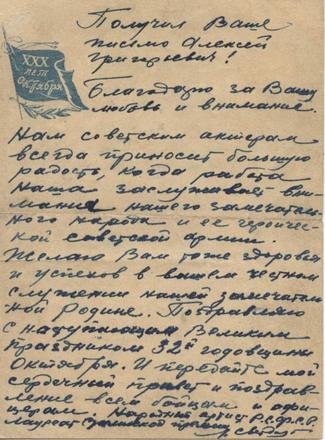 Получил Ваше
письмо Алексей
Григорьевич!
XXX
лет
Октября
Благодарю за Вашу
любовь и внимание.
Нам советским актерам
всегда приносит большую
радость, когда работа
наша заслуживает вни-
мания нашего замечатель-
ного народа и ее героичес-
кой советской армии.
Желаю Вам тоже здоровья
и успехов в вашем честном
служении нашей замечатель-
ной Родине. Поздравляю
с наступающим Великим
праздником 32й годовщины
Октября. И передайте мой
сердечный привет и поздрав-
ление всем бойцам и офи-
церам. Народный артист Р.С.Ф.С.Р.
Лауреат Сталинской премии